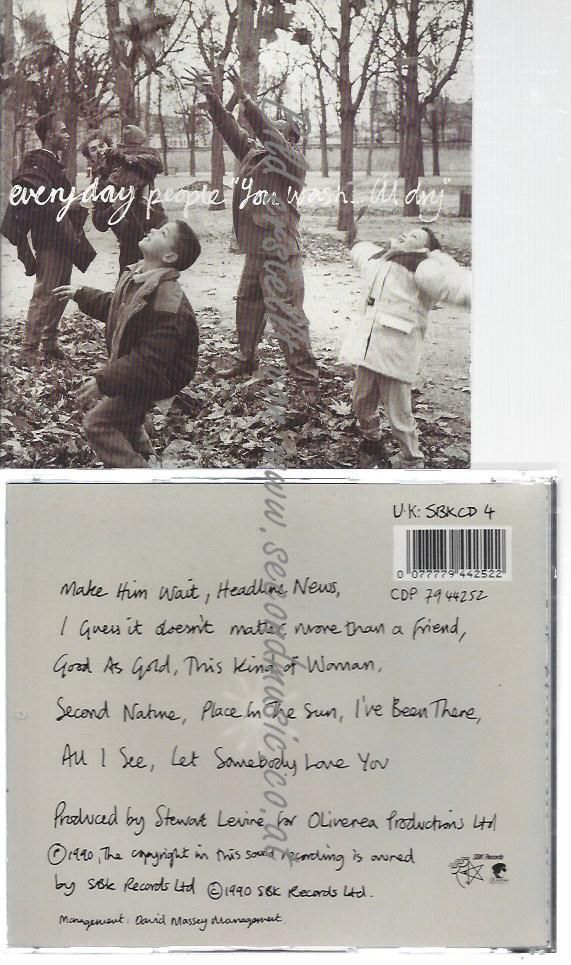 everyday people "You wash... I'll dry"
U.K: SBKCD 4
0 077779 442522
CDP 7944252
Make Him Wait, Headline News,
I Guess it doesn't matter, more than a friend,
Good As Gold, This Kind of Woman,
Second Nature, Place In The Sun, I've Been There,
All I See, Let Somebody Love You
Produced by Stewart Levine for Oliverea Productions Ltd
Ⓟ1990, The copyright in this sound recording is owned
by SBK Records Ltd ©1990 SBK Records Ltd.
SBK Records
Management: David Massey Management.
www.secondmusic.co.at